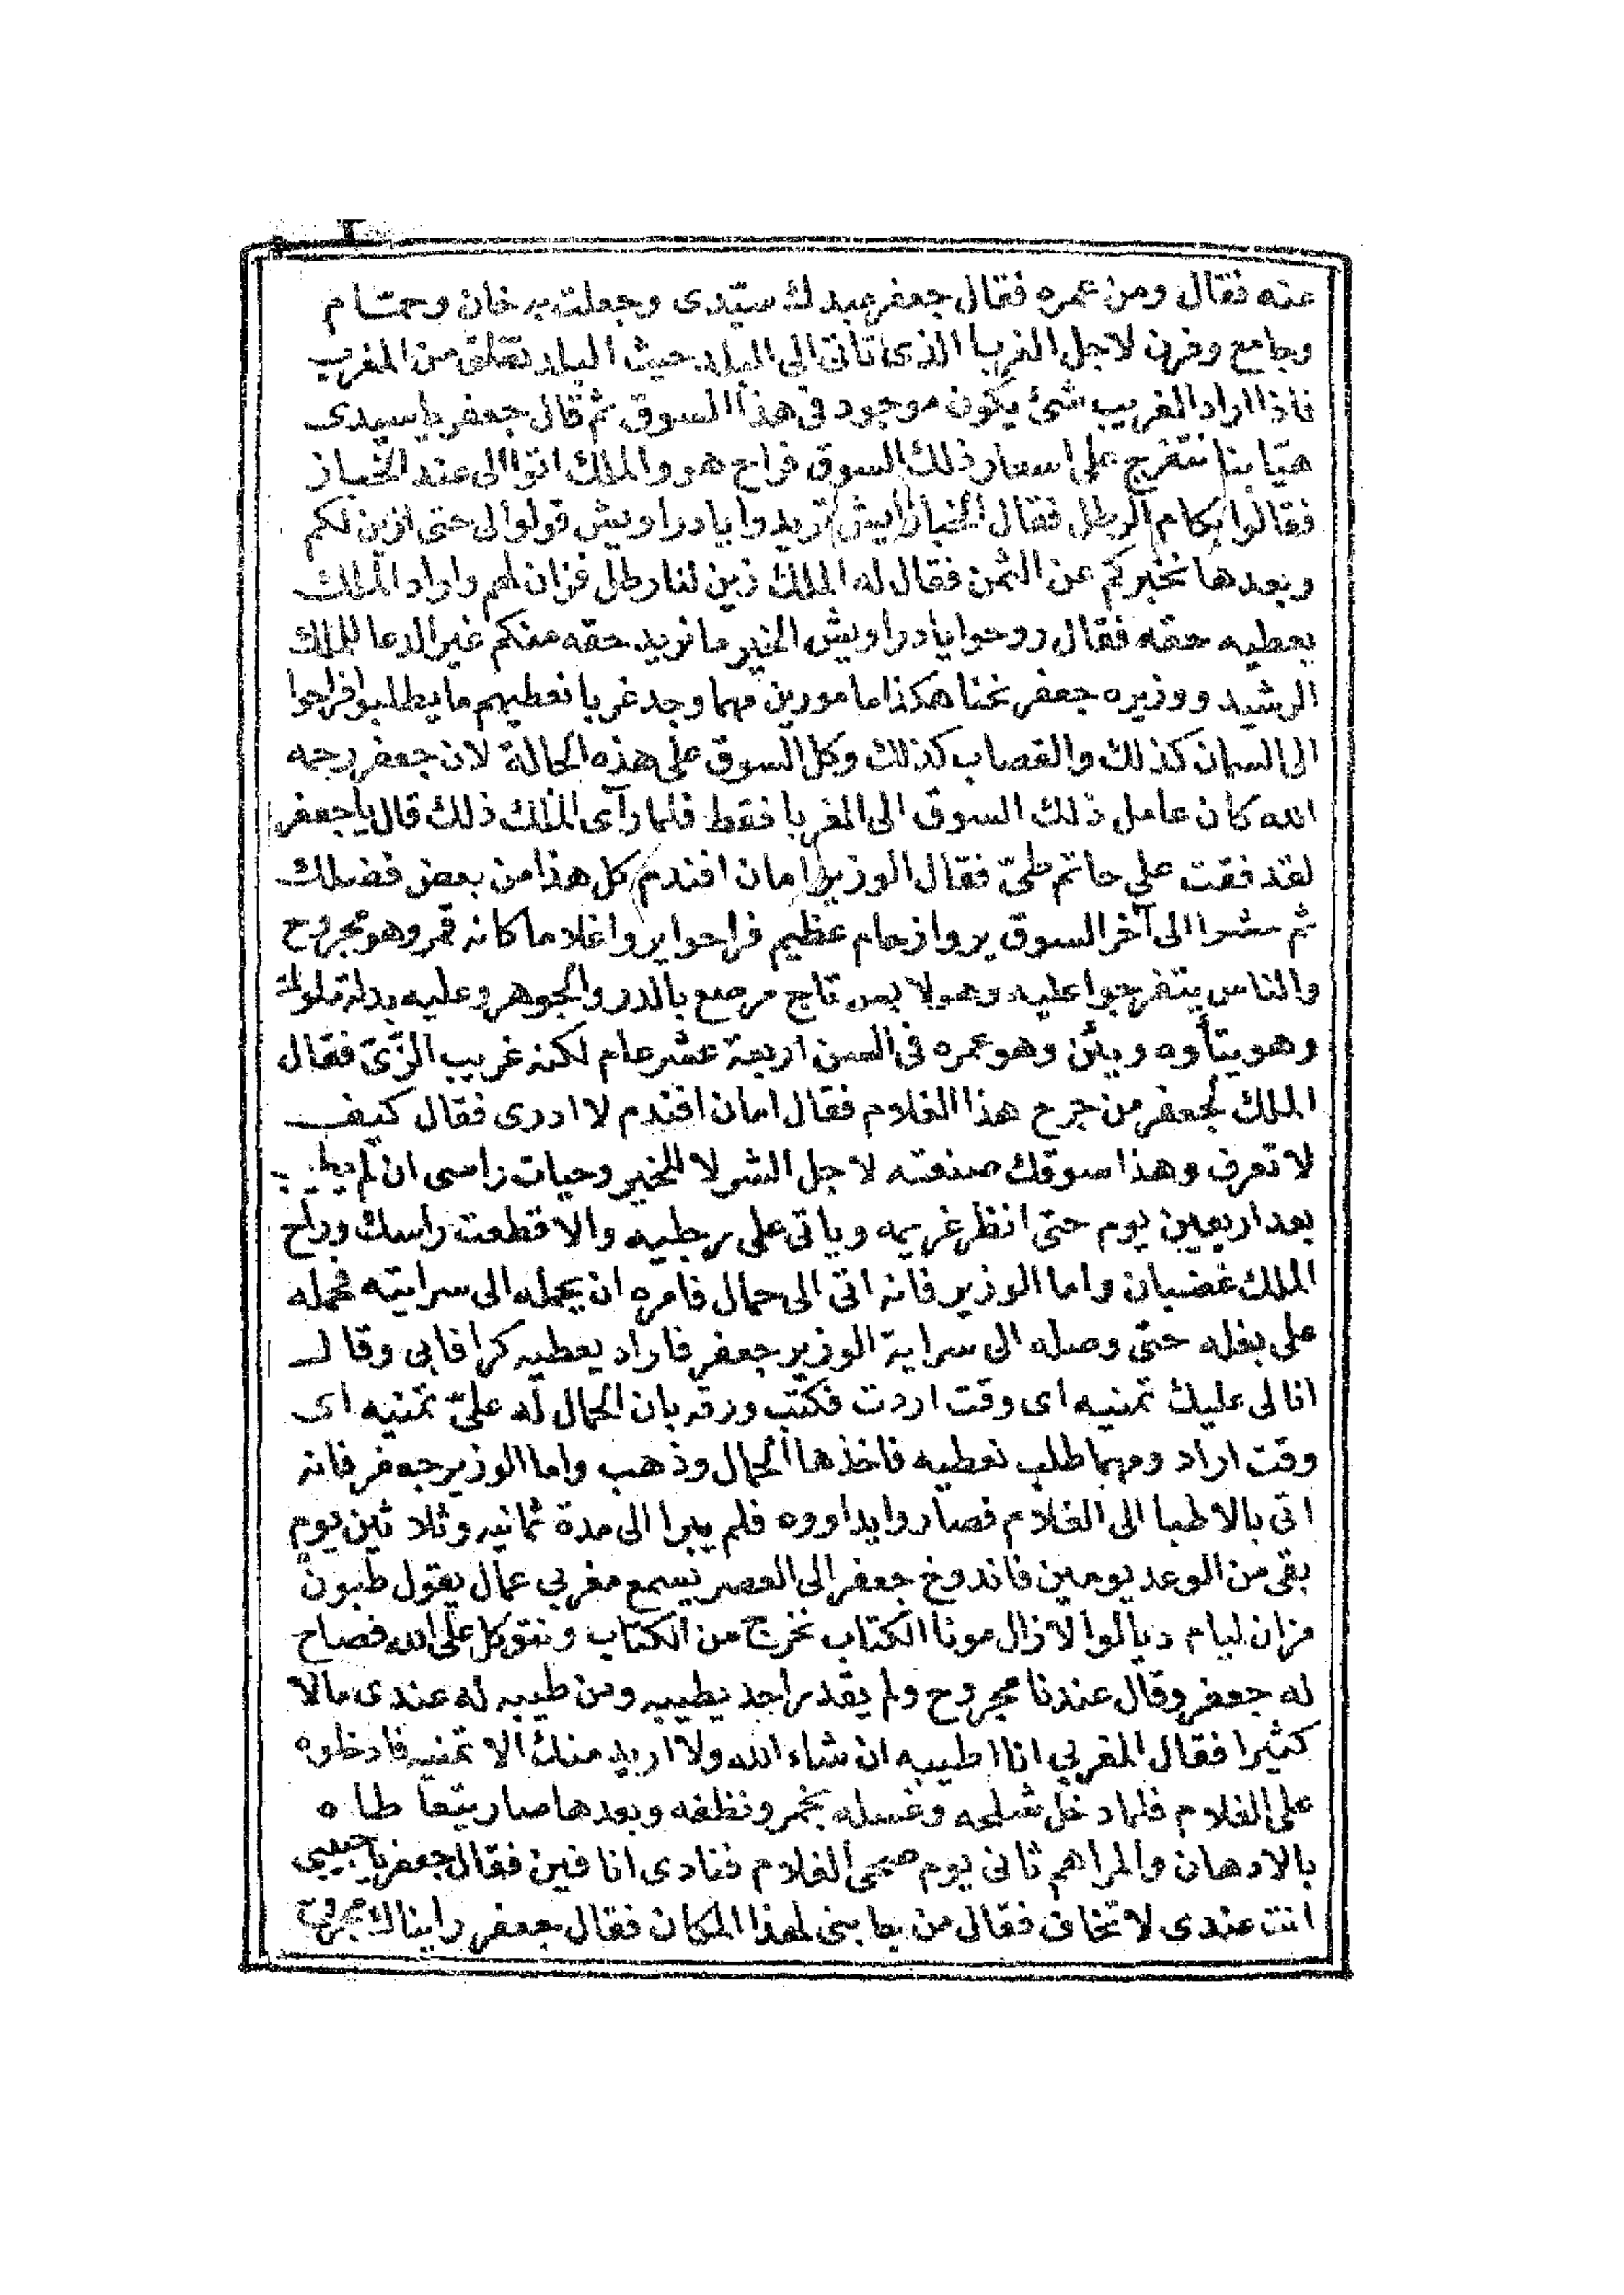 عنه فقال ومن عمره فقال جعفر عبدك ستيدى وجعلت به خان وحمتام
وجامع وفرن لاجل الغربا الذى تأتى الى البلد حيث البلد تقلق من المغرب
فاذا اراد الغريب شئ يكون موجود فى هذا السوق ثم قال جعفر يا سيدى
هيا بنا نتفرج على اسعار ذلك السوق فراح هو والملك اتوا الى عند الخباز
فقالوا بكام الرطل فقال الخباز ايش تريدوا يا دراويش قولوا لى حتى ازين لكم
وبعدها نخبركم عن الثمن فقال له الملك زين لنا رطل فزان لهم واراد الملك
يعطيه حقه فقال روحوا يا دراويش الخير ما نريد حقه منكم غير الدعا للملك
الرشيد ووزيره جعفر نحنا هكذا مامورين مهما وجد غربا نعطيهم ما يطلبوا فراحوا
الى السمان كذلك والقصاب كذلك وكل السوق على هذه الحالة لان جعفر رحمه
الله كان عامل ذلك السوق الى الغربا فقط فلما رآى الملك ذلك قال يا جعفر
لقد فقت على حاتم طىّ فقال الوزير امان افندم كل هذا من بعض فضلك
ثم مشوا الى آخر السوق يروا زحام عظيم فراحوا يروا غلاما كانه قمر وهو مجروح
والناس يتفرجوا عليه وهو لابس تاج مرصع بالدر والجوهر وعليه بدلة ملوك
وهو يتأوه ويئن وهو عمره فى السن اربعة عشر عام لكنه غريب الزّىّ فقال
الملك لجعفر من جرح هذا الغلام فقال امان افندم لا ادرى فقال كيف
لا تعرف وهذا سوقك صنعته لاجل الشر لا للخير وحيات راسى ان لم يطيب
بعد اربعين يوم حتى انظر غريمه وياتى على رجليه والا قطعت راسك وراح
الملك غضبان واما الوزير فانه اتى الى حمال فامره ان يحمله الى سرايته فحمله
على بغله حتى وصله الى سراية الوزير جعفر فاراد يعطيه كرا فابى وقال
انا لى عليك تمنيه اى وقت اردت فكتب ورقه بان الحمال له علىّ تمنيه اى
وقت اراد ومهما طلب نعطيه فاخذها الحمال وذهب واما الوزير جعفر فانه
اتى بالاطبا الى الغلام فصاروا يداووه فلم يبرا الى مدة ثمانيه وثلاثين يوم
بقى من الوعد يومين فاندوخ جعفر الى العصر يسمع مغربي عمال يقول طبون
مزان ليام ديالوا لازال مونا الكتاب نخرج من الكتاب ونتوكل على الله فصاح
له جعفر وقال عندنا مجروح ولم يقدر احد يطيبه ومن طيبه له عندى مالا
كثيرا فقال المغربي انا اطيبه ان شاء الله ولا اريد منك الا تمنيه فادخلوه
على الغلام فلما دخل شلحه وغسله بخمر ونظفه وبعدها صار يتعاطاه
بالادهان والمراهم ثانى يوم صحى الغلام فنادى انا فين فقال جعفر يا حبيبى
انت عندى لا تخاف فقال من جابنى لهذا المكان فقال جعفر رايناك مجروح